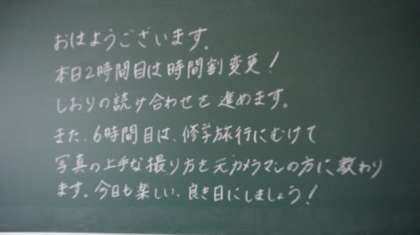 おはようございます。
本日2時間目は時間割変更!
しおりの読け合わせを進めます。
また、6時間目は、修学旅行にむけて
写真の上手な撮り方を元カメラマンの方に教わり
ます。今日も楽しい、良き日にしましょう!